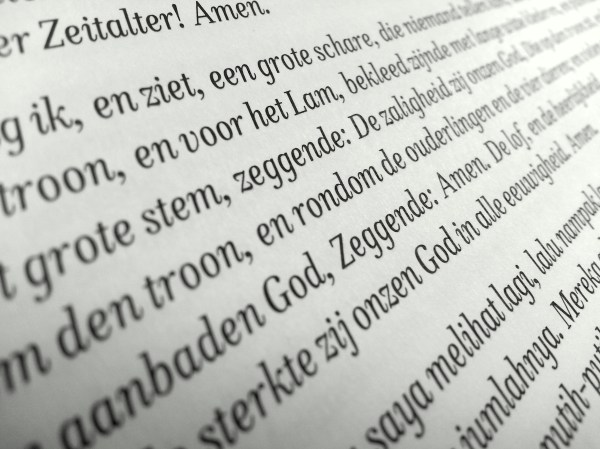 er Zeitalter! Amen.
g ik, en ziet, een grote schare, die niemand tellen
troon, en voor het Lam, bekleed zijnde met lange witte
t grote stem, zeggende: De zaligheid zij onzen God,
m den troon, en rondom de ouderlingen en de vier dieren;
aanbaden God, Zeggende: Amen. De lof, en de heerlijkheid,
sterkte zij onzen God in alle eeuwigheid. Amen.
saya melihat lagi, lalu nampaklah
jumlahnya. Mereka
putih-putih